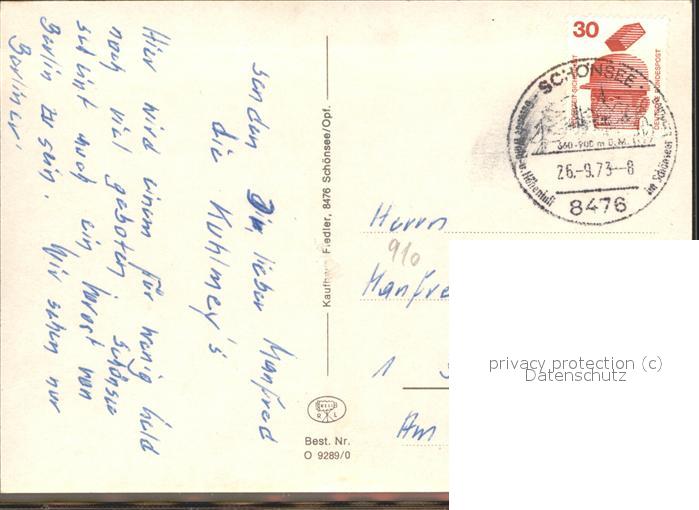 Hier wird einem für wenig Geld
noch viel geboten. Schönsee
scheint auch ein Vorort von
Berlin zu sein. Wir sehen nur
"Berliner"
senden Dir, lieber Manfred
die Kuhlmey's
Kaufhaus Fiedler, 8476 Schönsee/Opf.
R L
Best. Nr.
O 9289/0
30
DEUTSCHE BUNDESPOST
SCHÖNSEE
660-900 m ü.M.
26.-9.73-8
8476
Höhenluft
im Schönseer
Herrn
910
Manfre
1
Am
privacy protection (c)
Datenschutz